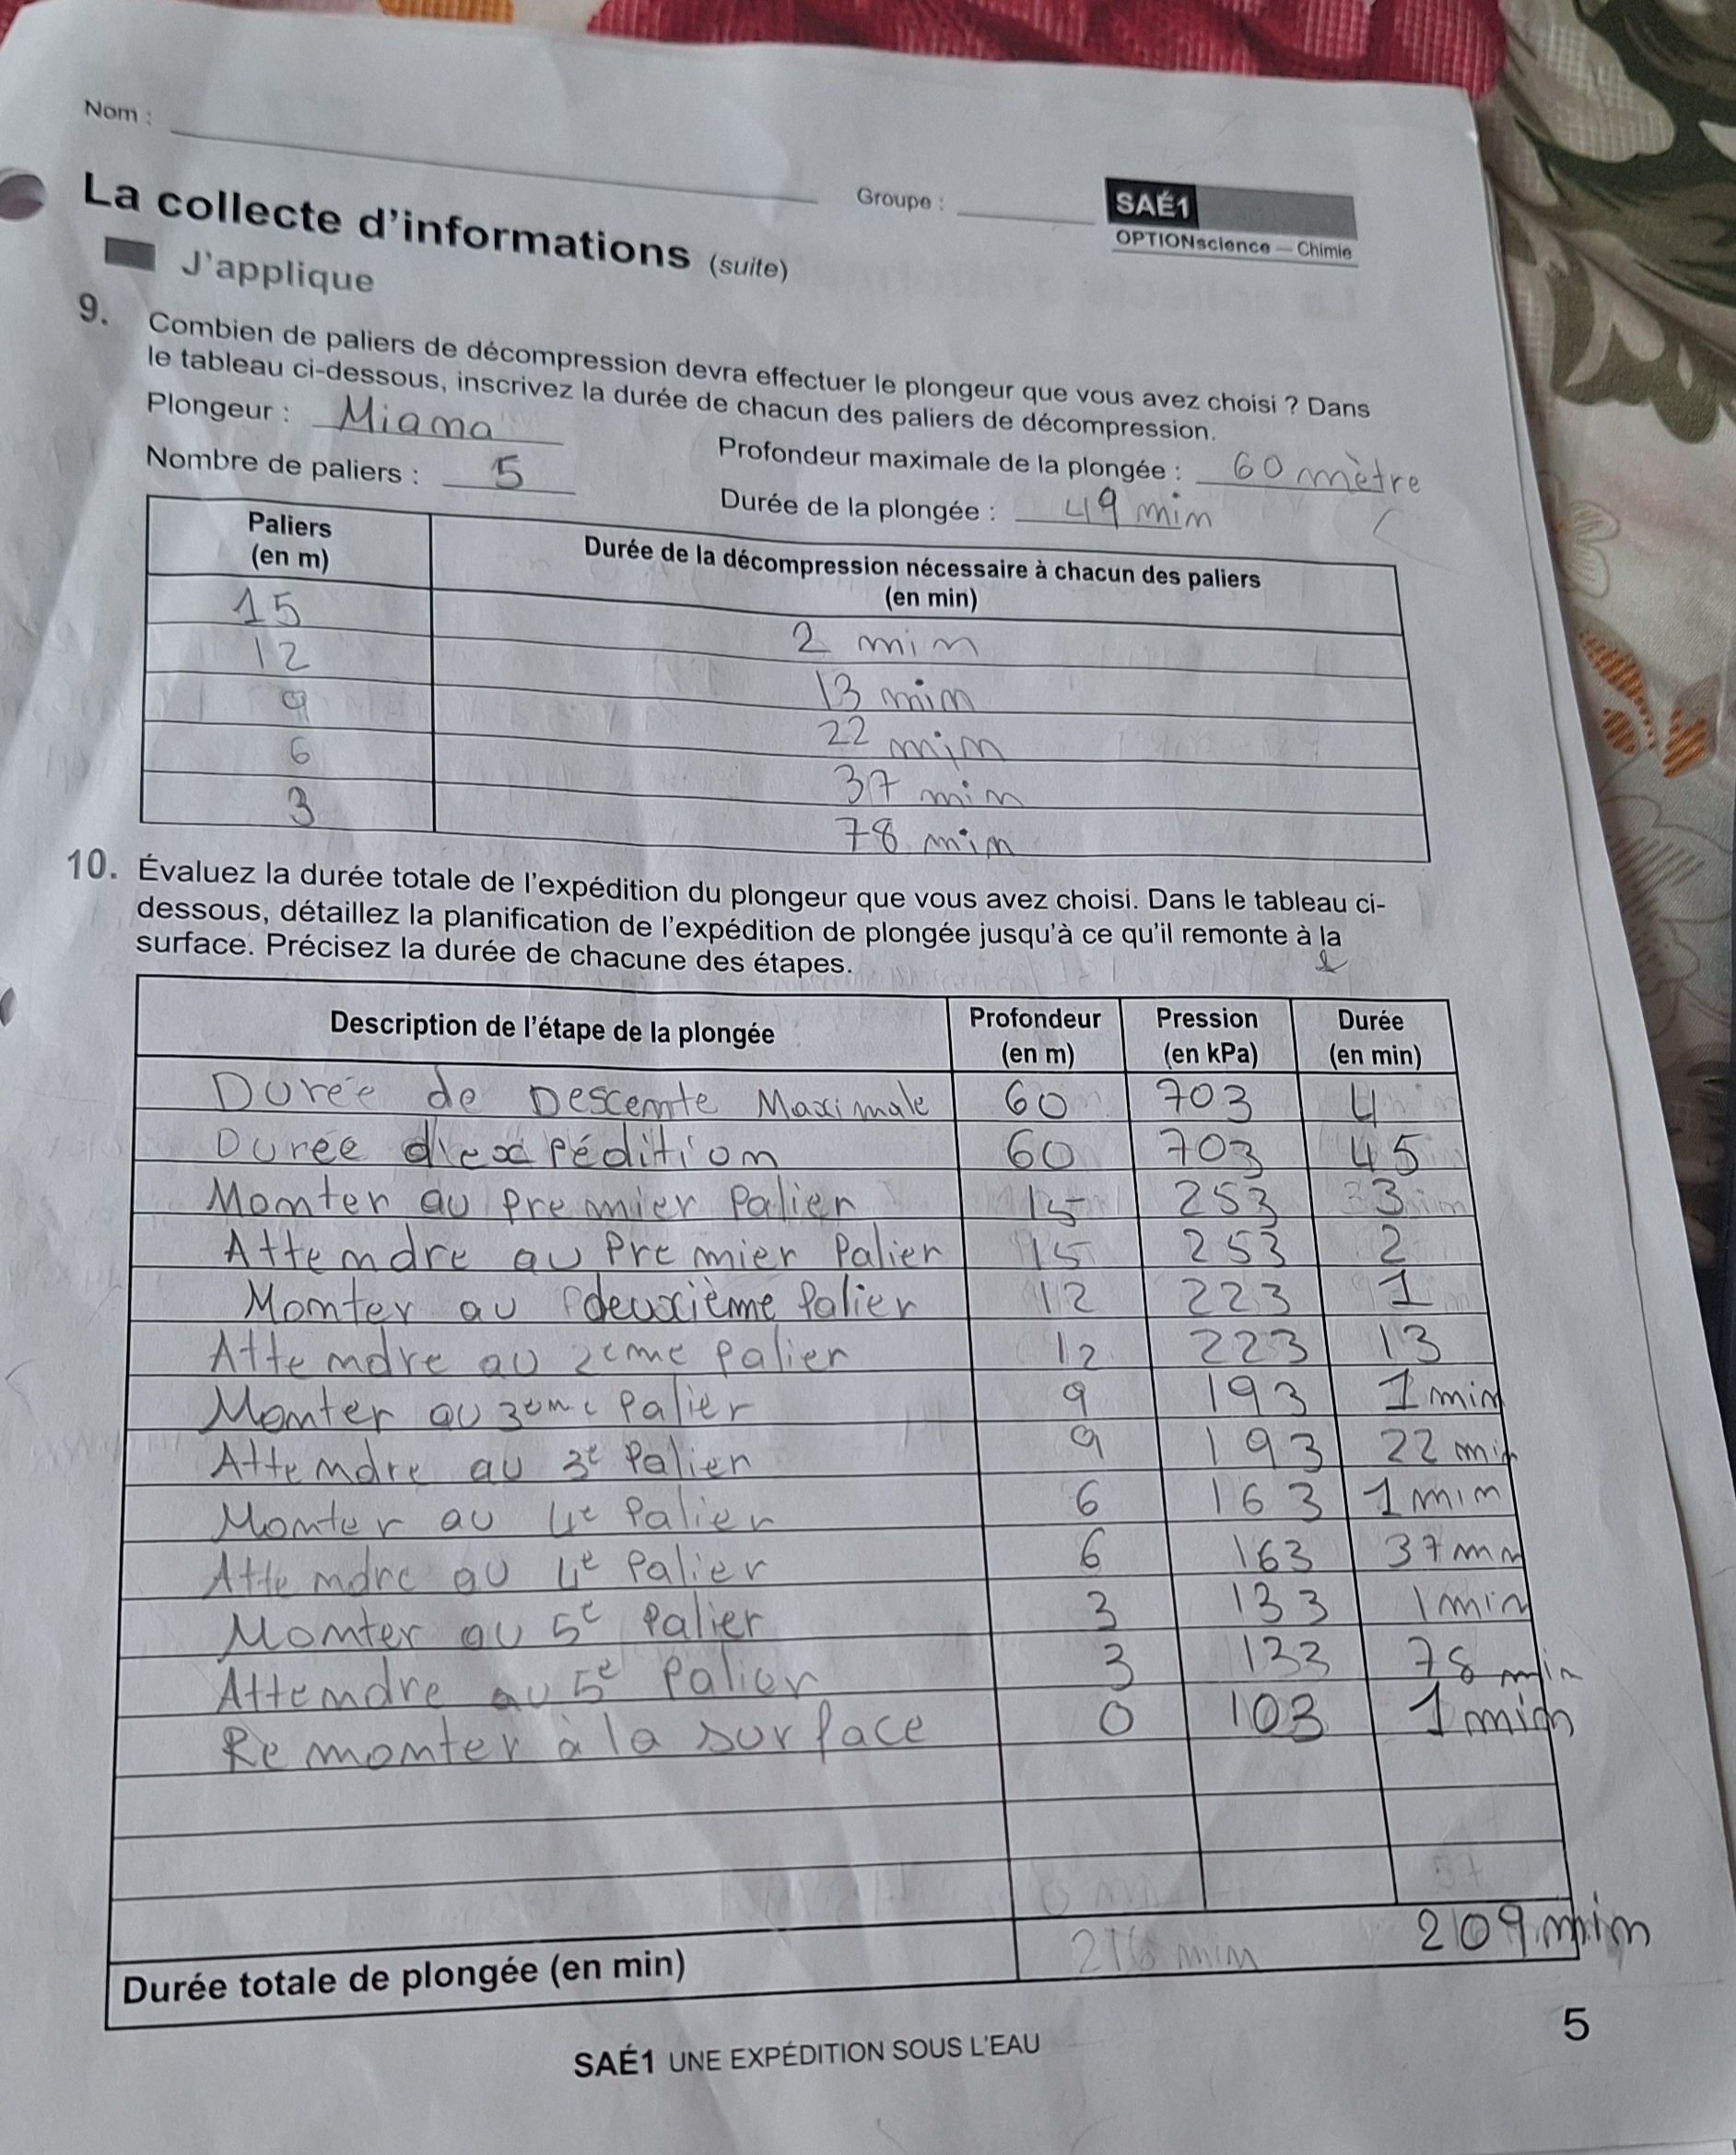 Nom :
Groupe :
SAÉ1
OPTIONscience — Chimie
La collecte d'informations (suite)
J'applique
9. Combien de paliers de décompression devra effectuer le plongeur que vous avez choisi ? Dans
le tableau ci-dessous, inscrivez la durée de chacun des paliers de décompression.
Plongeur : Miana
Profondeur maximale de la plongée : 60 mètre
Nombre de paliers : 5
Durée de la plongée : 49 min
Paliers (en m) Durée de la décompression nécessaire à chacun des paliers (en min)
15 2 min
12 13 min
9 22 min
6 37 min
3 78 min
10. Évaluez la durée totale de l'expédition du plongeur que vous avez choisi. Dans le tableau ci-
dessous, détaillez la planification de l'expédition de plongée jusqu'à ce qu'il remonte à la
surface. Précisez la durée de chacune des étapes.
Description de l'étape de la plongée Profondeur (en m) Pression (en kPa) Durée (en min)
Durée de Descente Maximale 60 703 4
Durée d'expédition 60 703 45
Monter au premier Palier 15 253 3
Attendre au Premier Palier 15 253 2
Monter au deuxième Palier 12 223 1
Attendre au 2eme palier 12 223 13
Monter au 3eme Palier 9 193 1 min
Attendre au 3e Palier 9 193 22 min
Monter au 4e Palier 6 163 1 min
Attendre au 4e Palier 6 163 37 mn
Monter au 5e Palier 3 133 1 min
Attendre au 5e Palier 3 133 78 min
Remonter à la surface 0 103 1 min
Durée totale de plongée (en min) 216 min 209 min
SAÉ1 UNE EXPÉDITION SOUS L'EAU
5